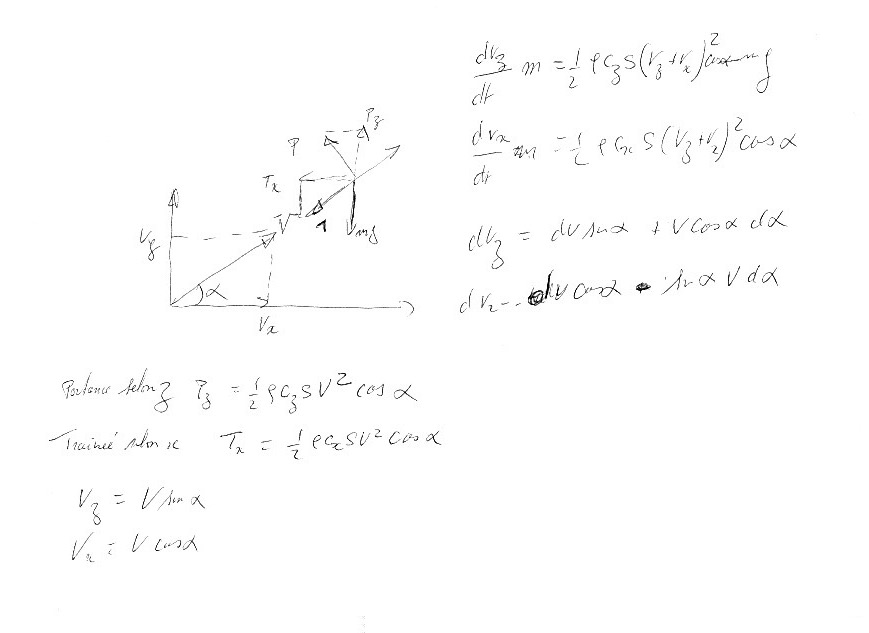 dVz/dt m = 1/2 ρ Cz S (Vz + Vx)² cosα - mg
dVx/dt m = 1/2 ρ Cx S (Vz + Vx)² cos α
dVz = dV sin α + V cos α dα
dVx = dV cos α - sin α V dα
Pz
P
Tx
V
T
mg
Vz
α
Vx
Portance selon z Pz = 1/2 ρ Cz S V² cos α
Trainée selon x Tx = 1/2 ρ Cx S V² cos α
Vz = V sin α
Vx = V cos α